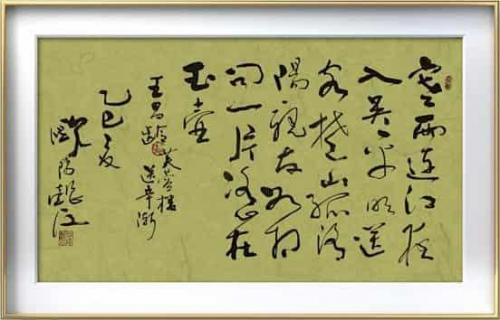 寒雨连江夜
入吴平明送
客楚山孤洛
陽親友如相
问一片冰心在
玉壶
王昌龄
芙蓉楼
送辛渐
乙巳夏